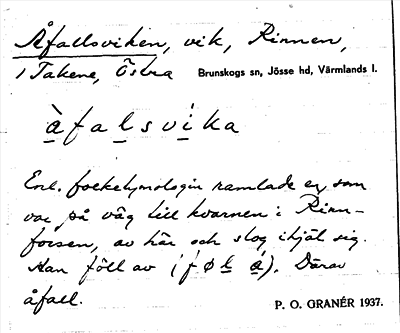 Åfallsviken, vik, Rinnen,
i Takene, Östra Brunskogs sn, Jösse hd, Värmlands l.
àfalsvíka
Enl. folketymologin ramlade en, som
var på väg till kvarnen i Rinn-
forsen, av här och slog ihjäl sig.
Han föll av Därav
åfall.
P. O. GRANÉR 1937.